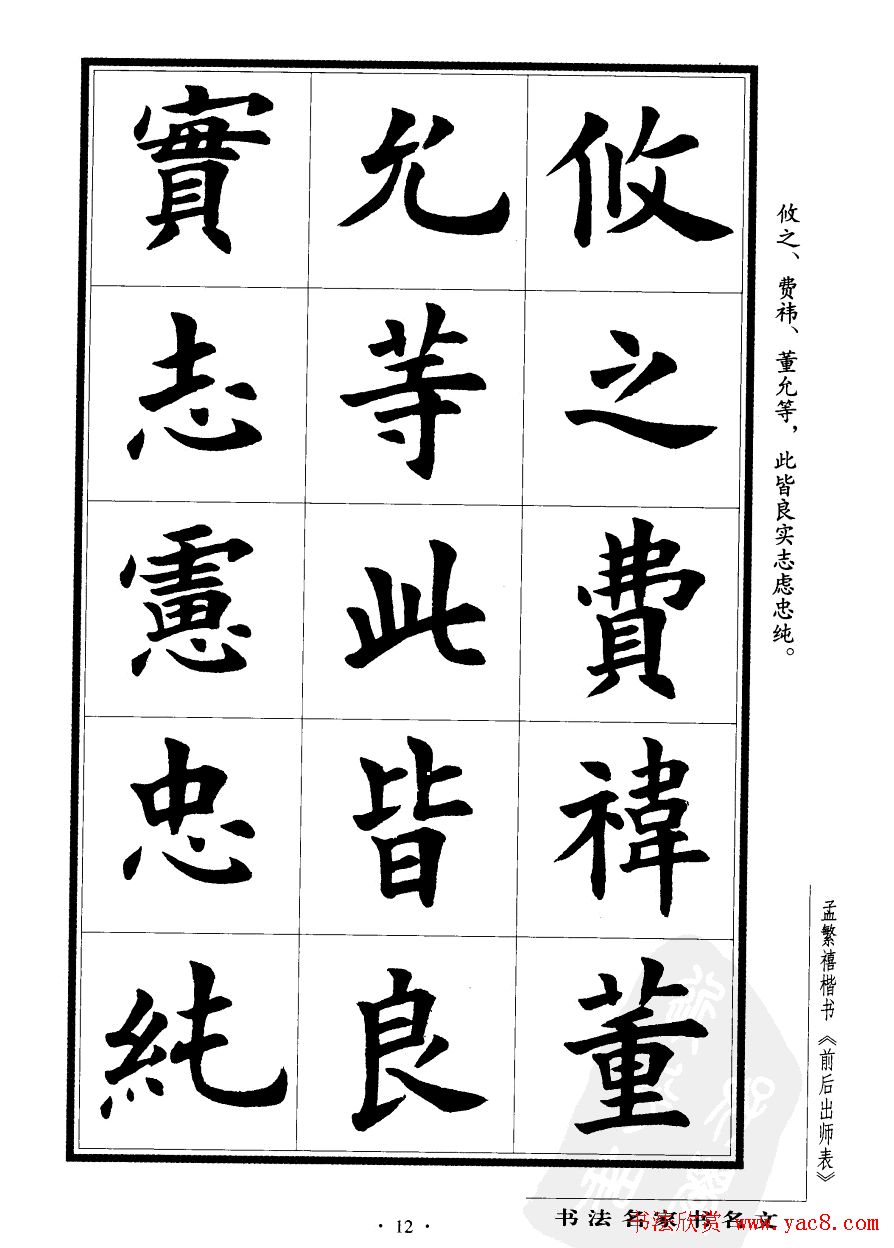 攸之費禕董
允等此皆良
實志慮忠純
攸之、费祎、董允等，此皆良实志虑忠纯。
孟繁禧楷书《前后出师表》
书法名家书名文
书法欣赏www.yac8.com
· 12 ·